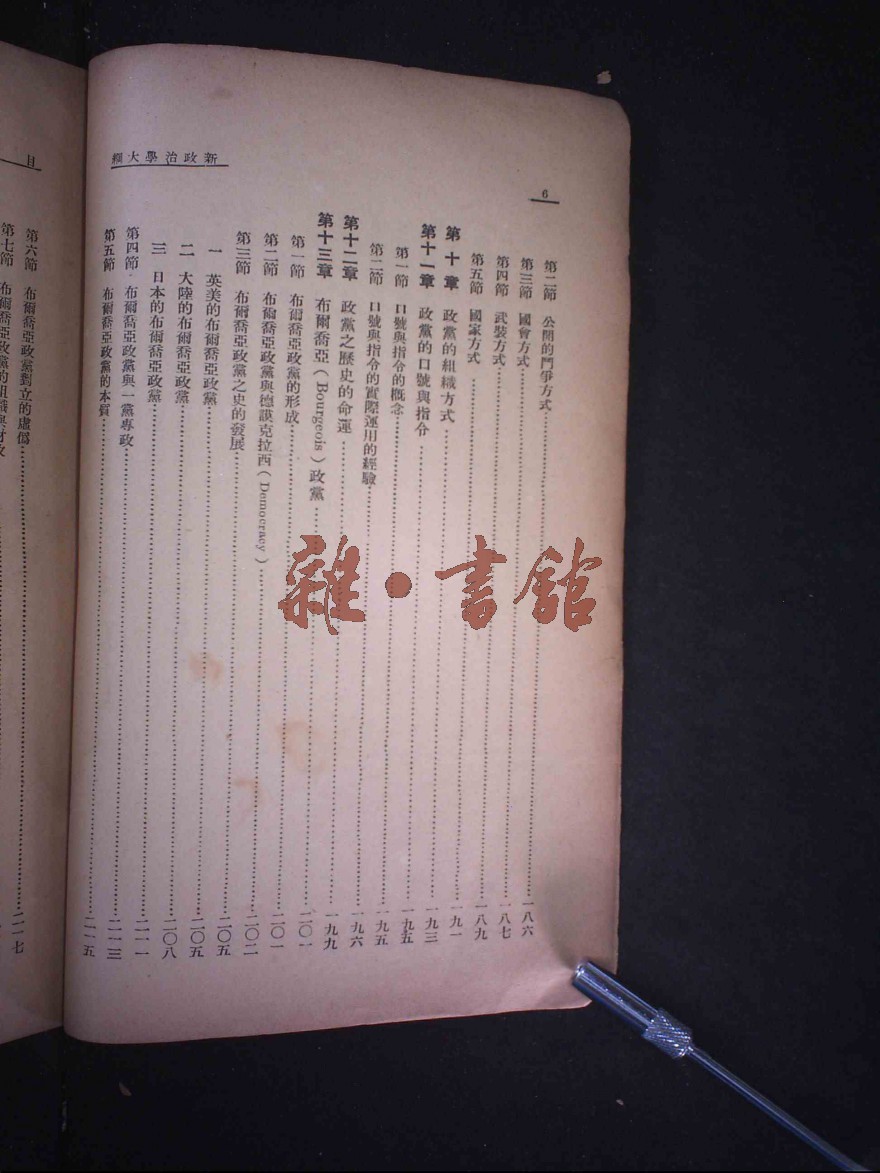 新政治學大綱
6
第二節 公開的鬥爭方式……一八六
第三節 國會方式……一八七
第四節 武裝方式……一八七
第五節 國家方式……一八九
第十章 政黨的組織方式……一九一
第十一章 政黨的口號與指令……一九三
第一節 口號與指令的概念……一九五
第二節 口號與指令的實際運用的經驗……一九五
第十二章 政黨之歷史的命運……一九六
第十三章 布爾喬亞(Bourgeois)政黨……一九九
第一節 布爾喬亞政黨的形成……二〇一
第二節 布爾喬亞政黨與德謨克拉西(Democracy)……二〇一
第三節 布爾喬亞政黨之史的發展……二〇二
一 英美的布爾喬亞政黨……二〇五
二 大陸的布爾喬亞政黨……二〇五
三 日本的布爾喬亞政黨……二〇八
第四節 布爾喬亞政黨與一黨專政……二一一
第五節 布爾喬亞政黨的本質……二一三
二一五
目
第六節 布爾喬亞政黨對立的虛僞……二一七
第七節 布爾喬亞政黨的組織與
雜·書館